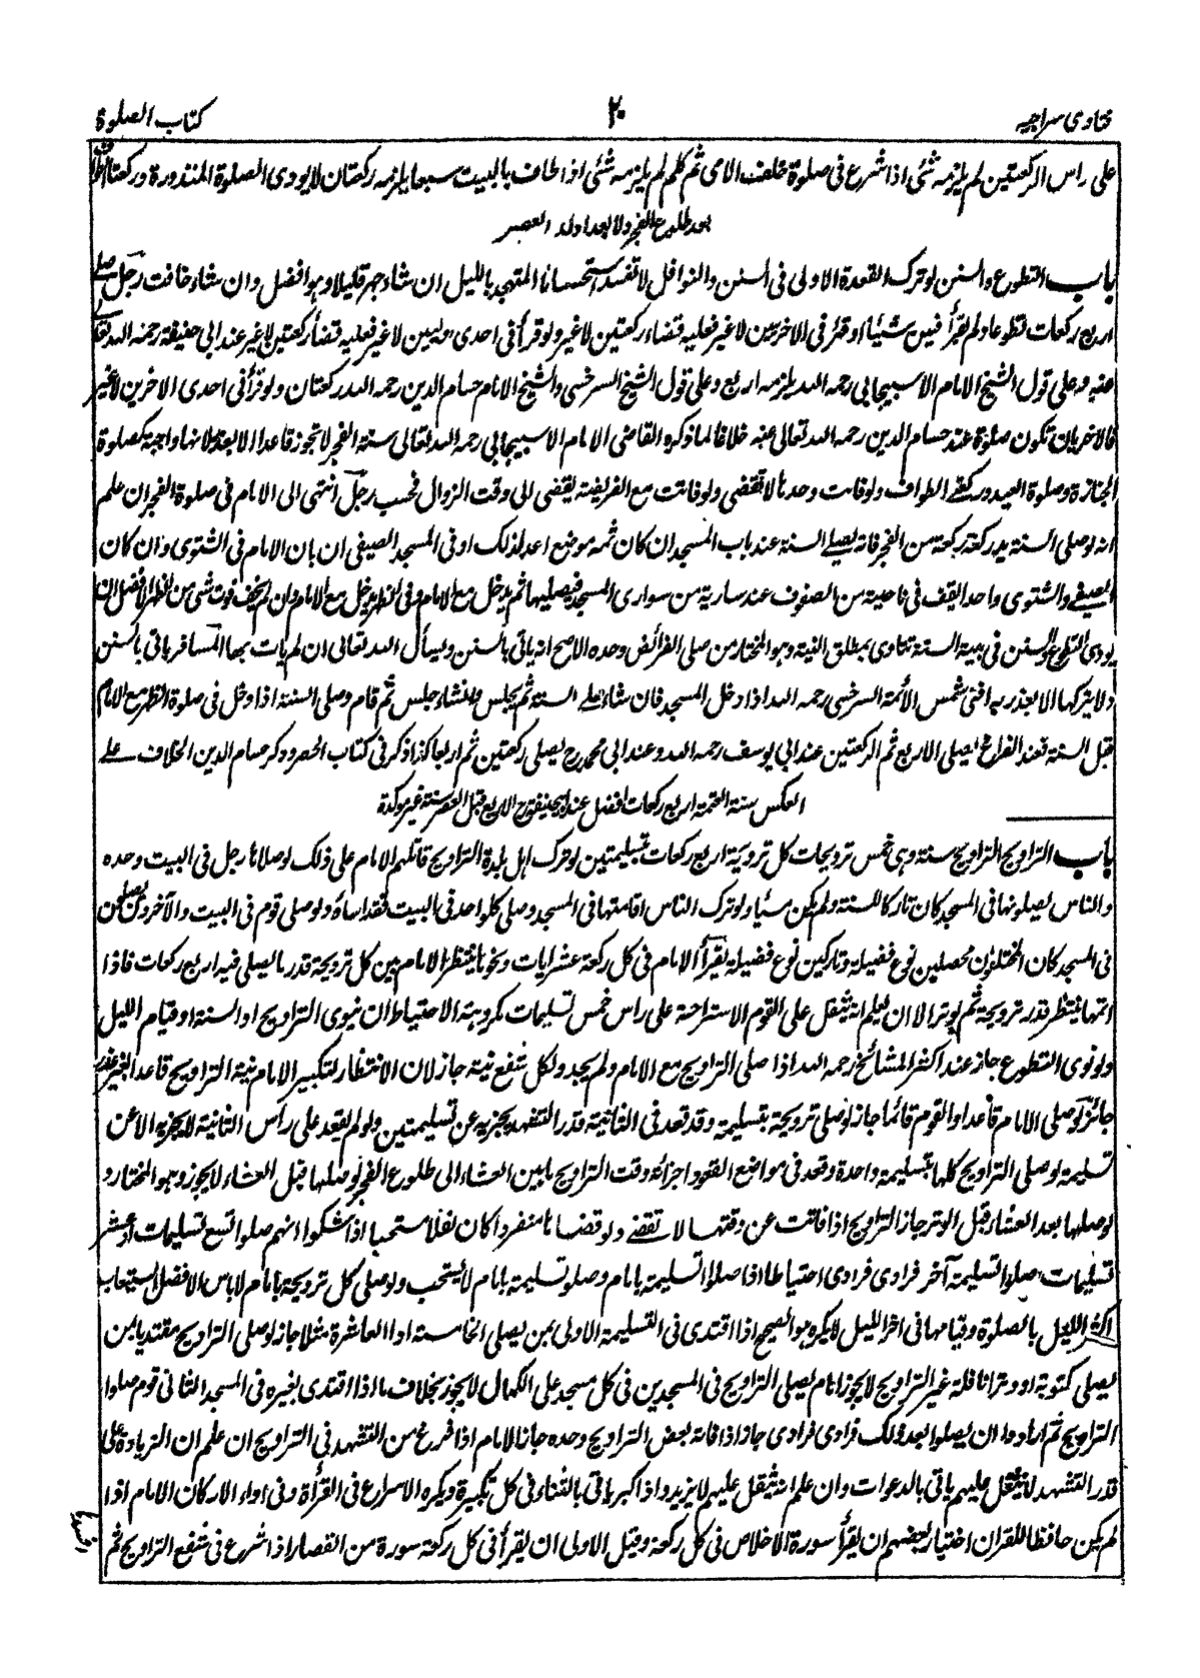 فتاوى سراجيه
٢٠
كتاب الصلوة
على راس الركعتين لم يلزمه شئى اذا شرع فى صلوة خلف الامى ثم تكلم لم يلزمه شئى اذا طاف بالبيت سبعا يلزمه ركعتان لا يودى الصلوة المنذورة وركعتا الطواف
بعد طلوع الفجر ولا بعد اداء العصر
باب التطوع والسنن لو ترك القعدة الاولى فى السنن والنوافل لا تفسد استحسانا المتهجد بالليل ان شاء جهر قليلا وهو افضل وان شاء خافت رجل صلى
اربع ركعات تطوعا ولم يقرأ فيهن شيئا او قرأ فى الاخريين لا غير فعليه قضاء ركعتين لا غير ولو قرأ فى احدى الاوليين لا غير فعليه قضاء ركعتين لا غير عند ابى حنيفة رحمه الله تعالى
عنه وعلى قول الشيخ الامام الاسبيجابى رحمه الله يلزمه اربع وعلى قول الشيخ السرخسى والشيخ الامام حسام الدين رحمه الله ركعتان ولو قرأ فى احدى الاخرين لا غير
فالاخريان تكون صلوة عند حسام الدين رحمه الله تعالى عنه خلافا لما ذكره القاضى الامام الاسبيجابى رحمه الله تعالى سنة الفجر لا تجوز قاعدا الا بعذر لانها واجبة كصلوة
الجنازة وصلوة العيد وركعتى الطواف ولو فاتت وحدها لا تقضى ولو فاتت مع الفريضة يقضى الى وقت الزوال فحسب رجل انتهى الى الامام فى صلوة الفجر ان علم
انه لو صلى السنة يدرك ركعة من الفجر فانه يصلى السنة عند باب المسجد ان كان ثمه موضع اعد لذلك او فى المسجد الصيفى ان بان الامام فى الشتوى وان كان
الصيفى والشتوى واحد القف فى ناحية من الصفوف عند سارية من سوارى المسجد فيصليها ثم يدخل مع الامام وفى الظهر يدخل مع الامام وان لم يخف فوت شئ من الظهر الافضل ان
يودى التطوع والسنن فى بيته السنة تتادى بمطلق النية وهو المختار من صلى الفرائض وحده الاصح انه ياتى بالسنن ويسأل الله تعالى ان لم يات بها المسافر ياتى بالسنن
ولا يتركها الا بعذر به افتى شمس الأئمة السرخسى رحمه الله اذا دخل المسجد فان شاء صلى السنة ثم يجلس وان شاء جلس ثم قام وصلى السنة اذا دخل فى صلوة الظهر مع الامام
قبل السنة فعند الفراغ يصلى الاربع ثم الركعتين عند ابى يوسف رحمه الله وعند ابى محمد رح يصلى ركعتين ثم اربعا كذا ذكر فى كتاب الحصر وذكر حسام الدين الخلاف على
العكس سنة العتمة اربع ركعات افضل عند ابيحنيفة رح الاربع قبل العصر سنة غير موكدة
باب التراويح التراويح سنة وهى خمس ترويحات كل ترويحة اربع ركعات بتسليمتين لو ترك اهل بلدة التراويح قاتلهم الامام على ذلك لو صلاها رجل فى البيت وحده
والناس يصلونها فى المسجد كان تاركا للسنة ولم يكن مسيئا ولو ترك الناس اقامتها فى المسجد وصلى كل واحد فى البيت فقد اساؤا ولو صلى قوم فى البيت والآخرون يصلون
فى المسجد كان المختلفون محصلين نوع فضيلة وتاركين نوع فضيلة يقرأ الامام فى كل ركعة عشر ايات ونحوها ينتظر الامام بين كل ترويحة قدر ما يصلى فيه اربع ركعات فاذا
اتمها ينتظر قدر ترويحة ثم يوتر الا ان يعلم انه يثقل على القوم الاستراحة على راس خمس تسليمات مكروهة الاحتياط ان ينوى التراويح او السنة او قيام الليل
ولو نوى التطوع جاز عند اكثر المشائخ رحمه الله اذا صلى التراويح مع الامام ولم يجدد لكل شفع نية جاز لان الانتظار لتكبير الامام نية التراويح قاعدا بغير عذر
جائز لو صلى الامام قاعدا والقوم قائما جاز لو صلى ترويحة بتسليمة وقد قعد فى الثانية قدر التشهد يجزيه عن تسليمتين ولو لم يقعد على رأس الثانية لا يجزيه الا عن
تسليمة لو صلى التراويح كلها بتسليمة واحدة وقعد فى مواضع القعود اجزاته وقت التراويح ما بين العشاء الى طلوع الفجر لو صلها قبل العشاء لا يجوز وهو المختار و
لو صلها بعد العشاء قبل الوتر جاز التراويح اذا فاتت عن وقتها لا تقضى ولو قضاها منفردا كان نفلا مستحبا اذا شكوا انهم صلوا تسع تسليمات او عشر
تسليمات صلوا تسليمة آخر فرادى فرادى احتياطا اذا صلوا تسليمة بامام وصلو تسليمة بامام لا يستحب ولو صلى كل ترويحة بامام لا باس الافضل استيعاب
اكثر الليل بالصلوة وقيامها فى اخر الليل لا يكره هو الصحيح اذا اقتدى فى التسليمة الاولى بمن يصلى الخامسة او العاشرة مثلا جاز لو صلى التراويح مقتديا بمن
يصلى مكتوبة او وترا نافلة غير التراويح لا يجوز امام يصلى التراويح فى المسجدين فى كل مسجد على الكمال لا يجوز بخلاف ما اذا اقتدى بغيره فى المسجد الثانى قوم صلوا
التراويح ثم ارادوا ان يصلوا بعد ذلك فرادى فرادى جاز اذا فاته بعض التراويح وحده جاز الامام اذا فرغ من التشهد فى التراويح ان علم ان الزيادة على
قدر التشهد لا يثقل عليهم ياتى بالدعوات وان علم انه يثقل عليهم لا يزيد واذا كبر ياتى بالثناء فى كل تكبيرة ويكره الاسراع فى القرأة وفى اداء الاركان الامام اذا
لم يكن حافظا للقران اختيار بعضهم ان يقرأ سورة الاخلاص فى كل ركعة وقيل الاولى ان يقرأ فى كل ركعة سورة من القصار اذا شرع فى شفع التراويح ثم